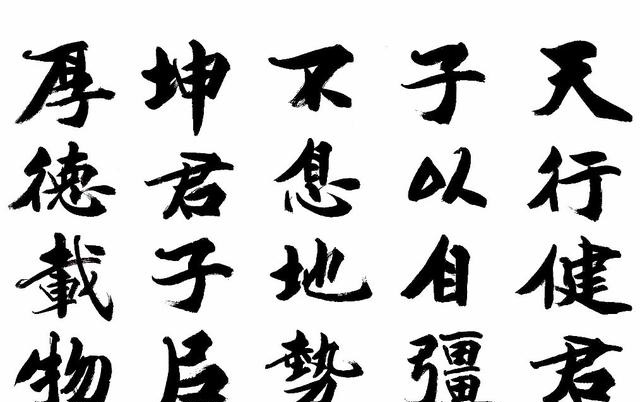 天行健君
子以自彊
不息地勢
坤君子
厚德載物